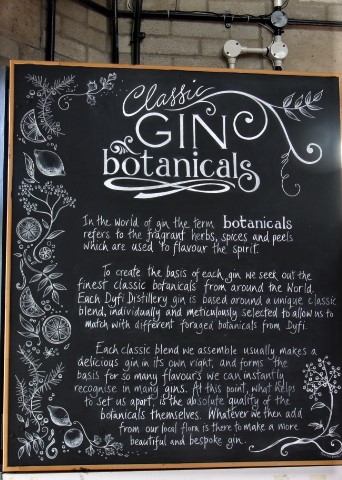 Classic
GIN
botanicals
In the world of gin the term botanicals
refers to the fragrant herbs, spices and peels
which are used to flavour the spirit.
To create the basis of each gin we seek out the
finest classic botanicals from around the world.
Each Dyfi Distillery gin is based around a unique classic
blend, individually and meticulously selected to allow us to
match with different foraged botanicals from Dyfi.
Each classic blend we assemble usually makes a
delicious gin in its own right, and forms the
basis for so many flavours we can instantly
recognise in many gins. At this point, what helps
to set us apart, is the absolute quality of the
botanicals themselves. Whatever we then add
from our local flora is there to make a more
beautiful and bespoke gin.